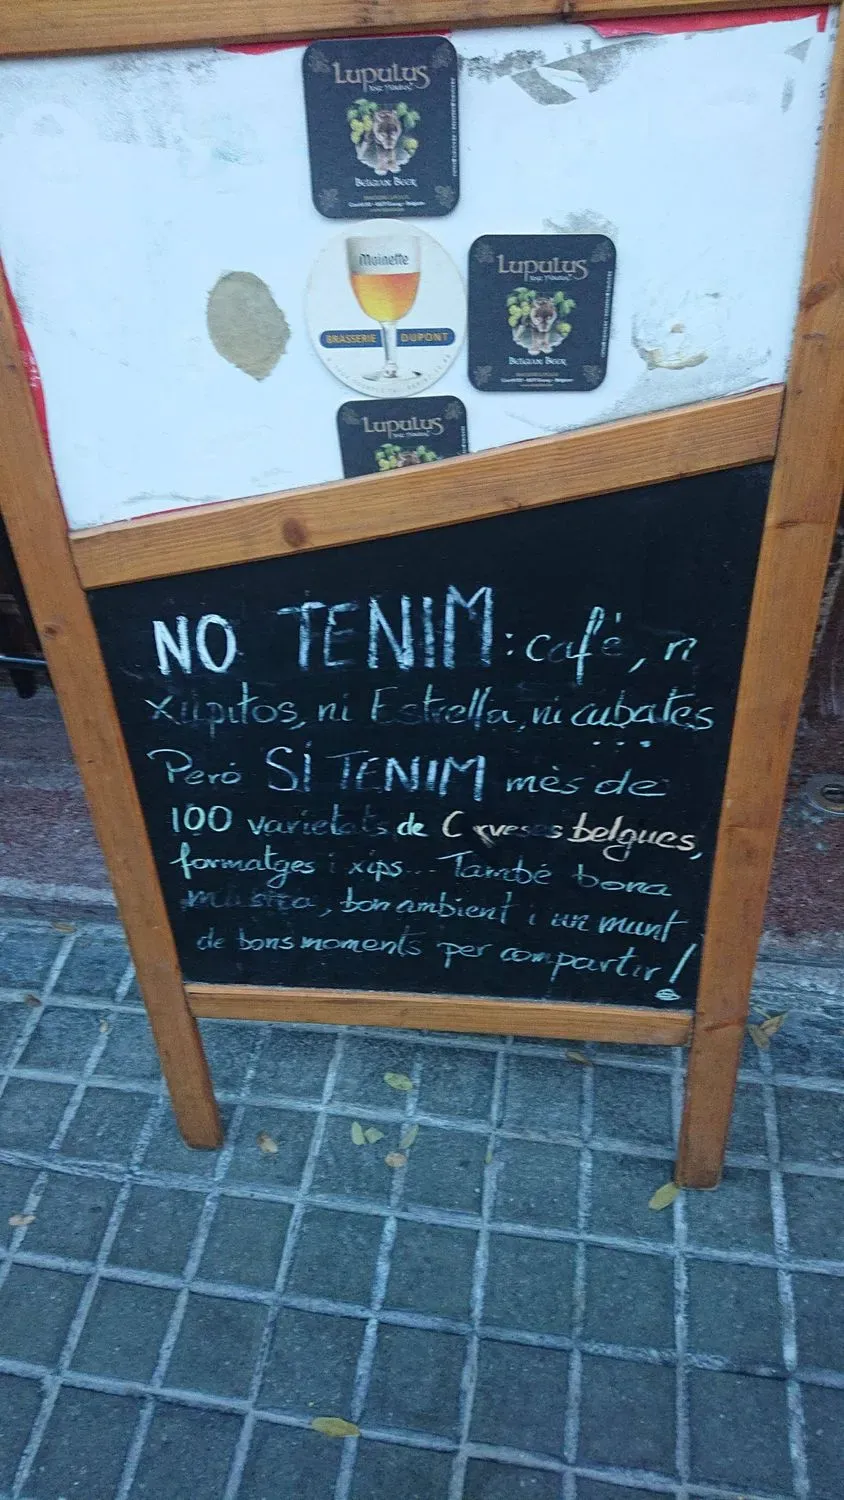 Lupulus
Belgian Beer
Moinette
BRASSERIE DUPONT
Lupulus
Belgian Beer
Lupulus
NO TENIM: café, n
xupitos, ni Estrella, ni cubates
...
Peró SÍ TENIM mès de
100 varietats de Cerveses belgues,
formatges i xips... També bona
música, bon ambient i un munt
de bons moments per compartir!